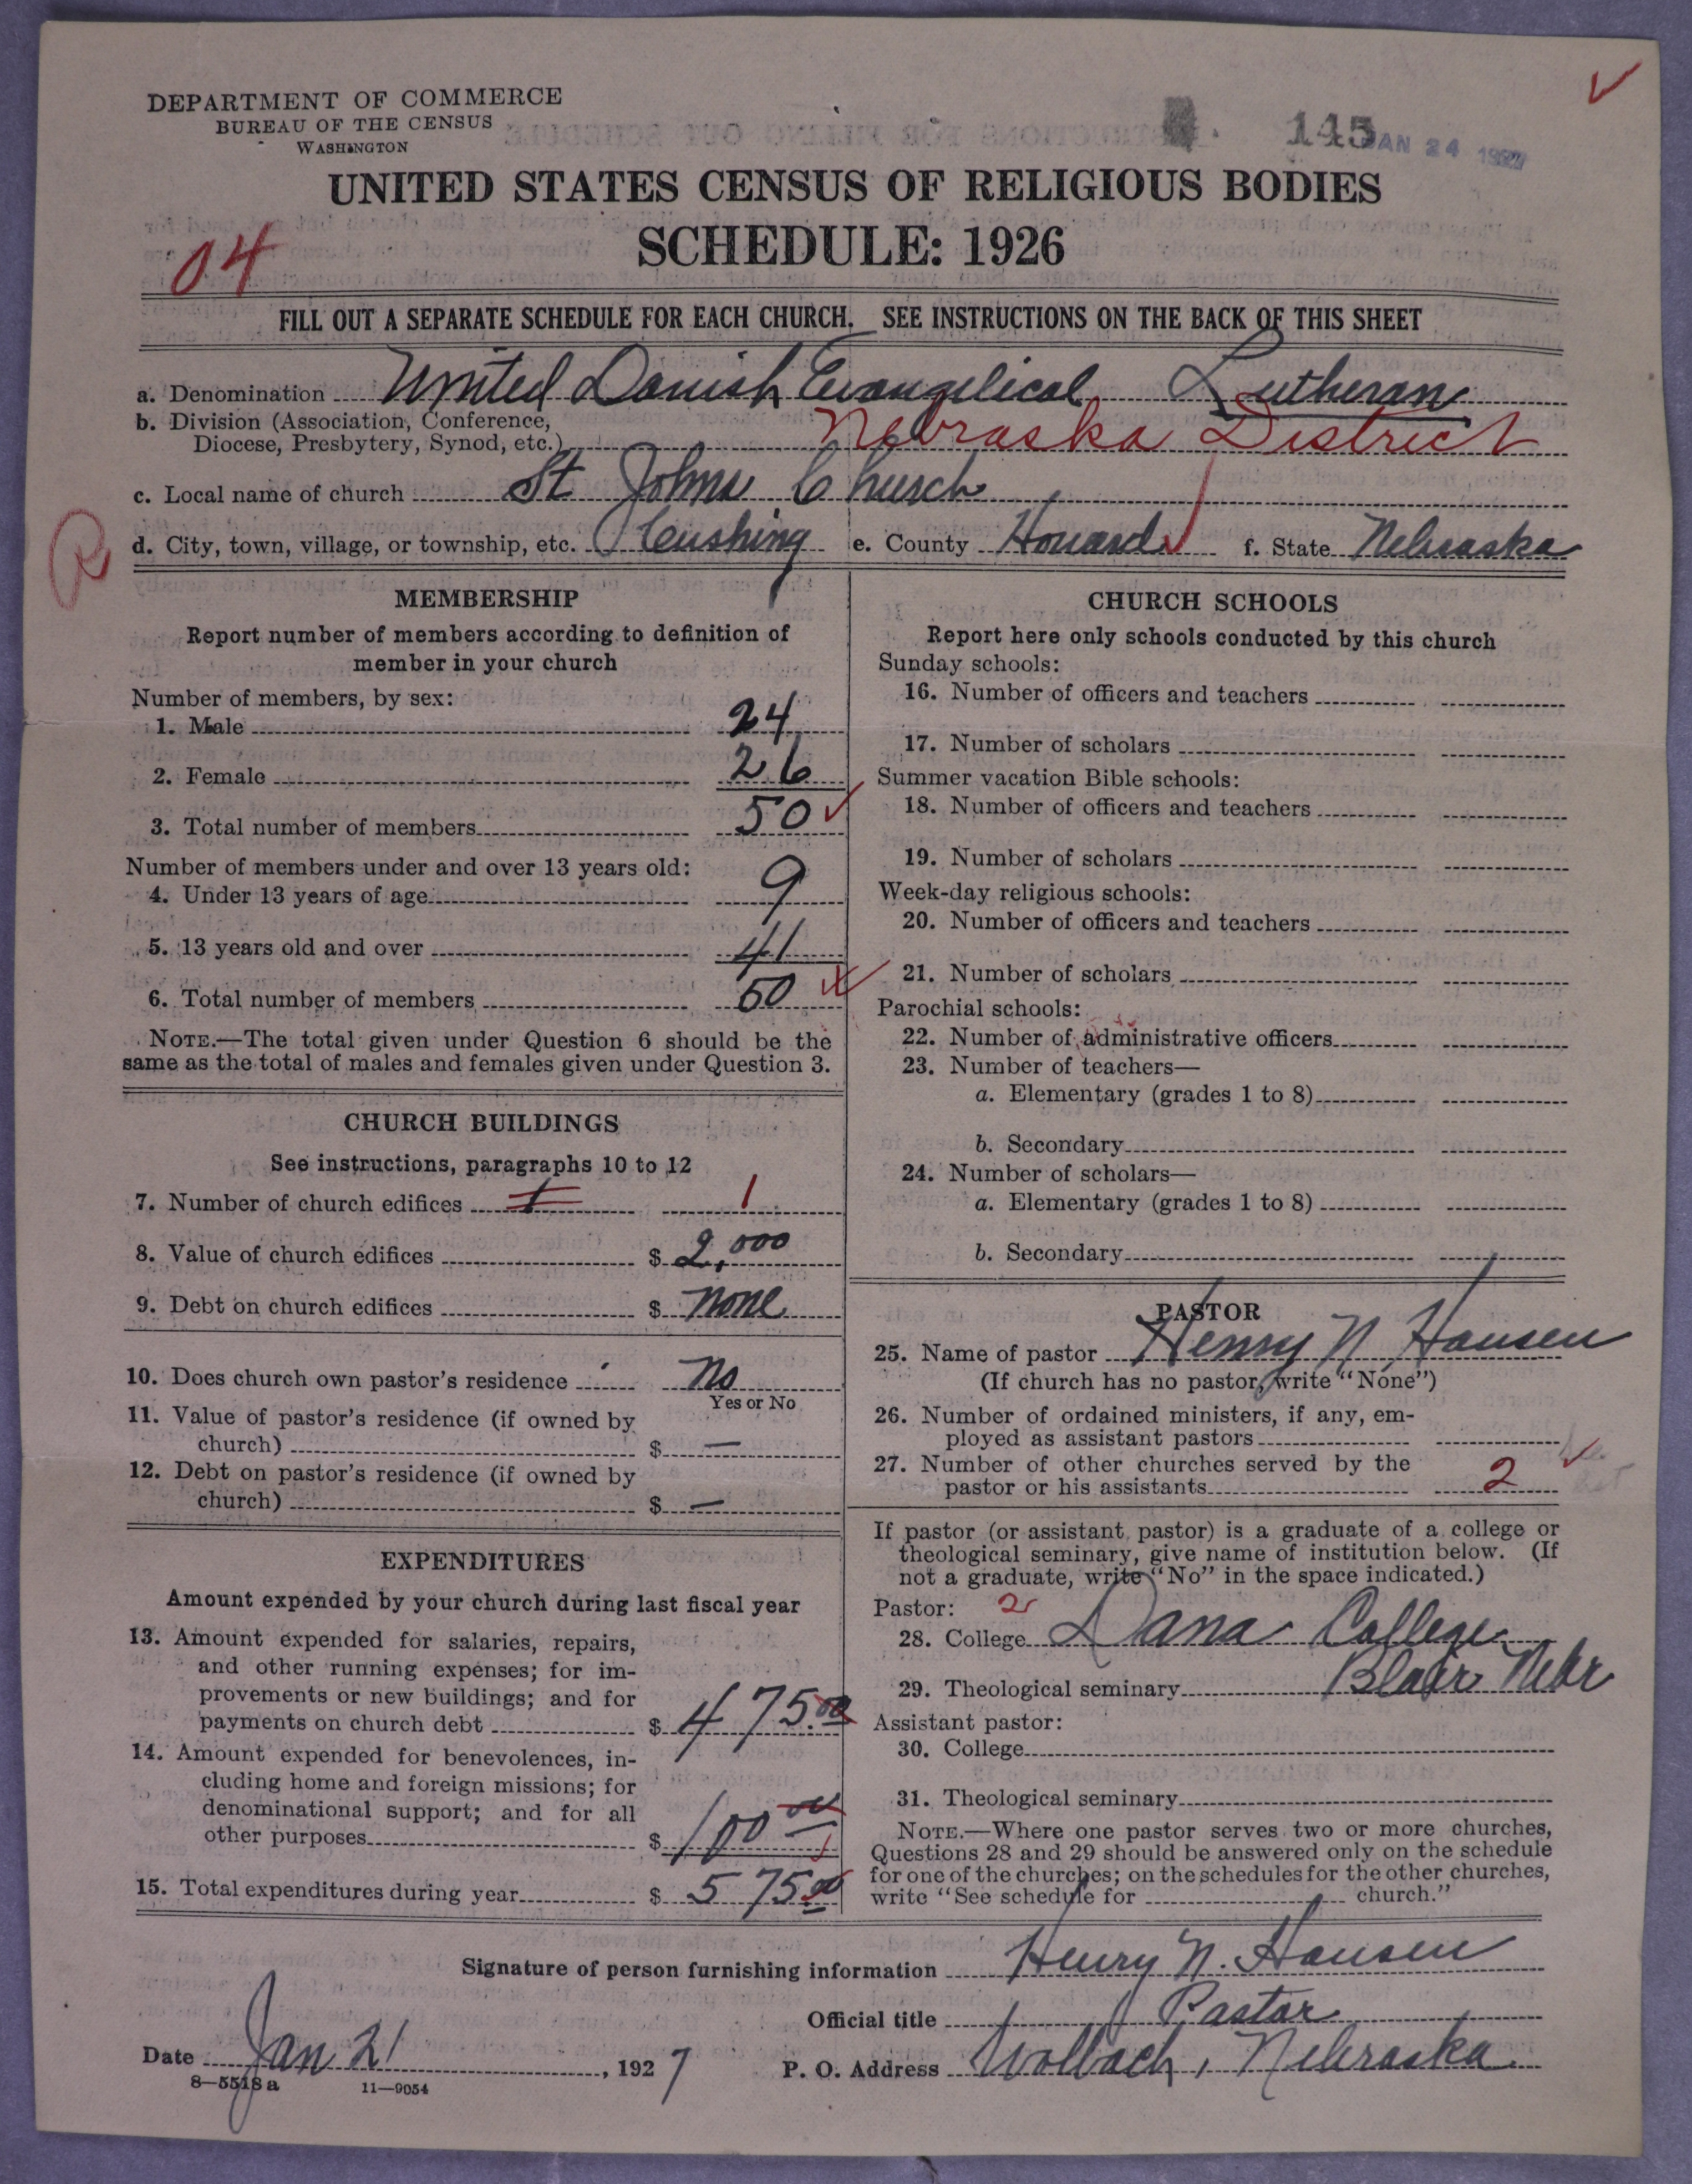 DEPARTMENT OF COMMERCE
BUREAU OF THE CENSUS
WASHINGTON
145
JAN 24 1927
UNITED STATES CENSUS OF RELIGIOUS BODIES
SCHEDULE: 1926
04
FILL OUT A SEPARATE SCHEDULE FOR EACH CHURCH. SEE INSTRUCTIONS ON THE BACK OF THIS SHEET
a. Denomination United Danish Evangelical Lutheran
b. Division (Association, Conference,
Diocese, Presbytery, Synod, etc.) Nebraska District
c. Local name of church St Johns Church
R
d. City, town, village, or township, etc. Cushing e. County Howard f. State Nebraska
MEMBERSHIP
Report number of members according to definition of
member in your church
Number of members, by sex:
1. Male 24
2. Female 26
3. Total number of members 50
Number of members under and over 13 years old:
4. Under 13 years of age 9
5. 13 years old and over 41
6. Total number of members 50
NOTE.—The total given under Question 6 should be the
same as the total of males and females given under Question 3.
CHURCH BUILDINGS
See instructions, paragraphs 10 to 12
7. Number of church edifices 1 1
8. Value of church edifices $ 2,000
9. Debt on church edifices $ None
10. Does church own pastor's residence No
Yes or No
11. Value of pastor's residence (if owned by
church) $ —
12. Debt on pastor's residence (if owned by
church) $ —
EXPENDITURES
Amount expended by your church during last fiscal year
13. Amount expended for salaries, repairs,
and other running expenses; for im-
provements or new buildings; and for
payments on church debt $ 475.00
14. Amount expended for benevolences, in-
cluding home and foreign missions; for
denominational support; and for all
other purposes $ 100 00
15. Total expenditures during year $ 575.00
CHURCH SCHOOLS
Report here only schools conducted by this church
Sunday schools:
16. Number of officers and teachers
17. Number of scholars
Summer vacation Bible schools:
18. Number of officers and teachers
19. Number of scholars
Week-day religious schools:
20. Number of officers and teachers
21. Number of scholars
Parochial schools:
22. Number of administrative officers
23. Number of teachers—
a. Elementary (grades 1 to 8)
b. Secondary
24. Number of scholars—
a. Elementary (grades 1 to 8)
b. Secondary
PASTOR
25. Name of pastor Henry N. Hansen
(If church has no pastor, write "None")
26. Number of ordained ministers, if any, em-
ployed as assistant pastors
27. Number of other churches served by the
pastor or his assistants 2
If pastor (or assistant pastor) is a graduate of a college or
theological seminary, give name of institution below. (If
not a graduate, write "No" in the space indicated.)
Pastor: 2
28. College Dana College
29. Theological seminary Blair Nebr
Assistant pastor:
30. College
31. Theological seminary
NOTE.—Where one pastor serves two or more churches,
Questions 28 and 29 should be answered only on the schedule
for one of the churches; on the schedules for the other churches,
write "See schedule for church."
Signature of person furnishing information Henry N. Hansen
Official title Pastor
Date Jan 21, 1927 P. O. Address Wolbach, Nebraska
8—5518 a 11—9054